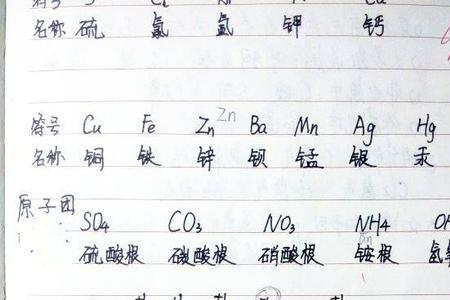 名称 硫 氯 氩 钾 钙
符号 Cu Fe Zn Zn Ba Mn Ag Hg
名称 铜 铁 锌 钡 锰 银 汞
原子团
SO4 CO3 NO3 NH4 OH
硫酸根 碳酸根 硝酸根 铵根 氢